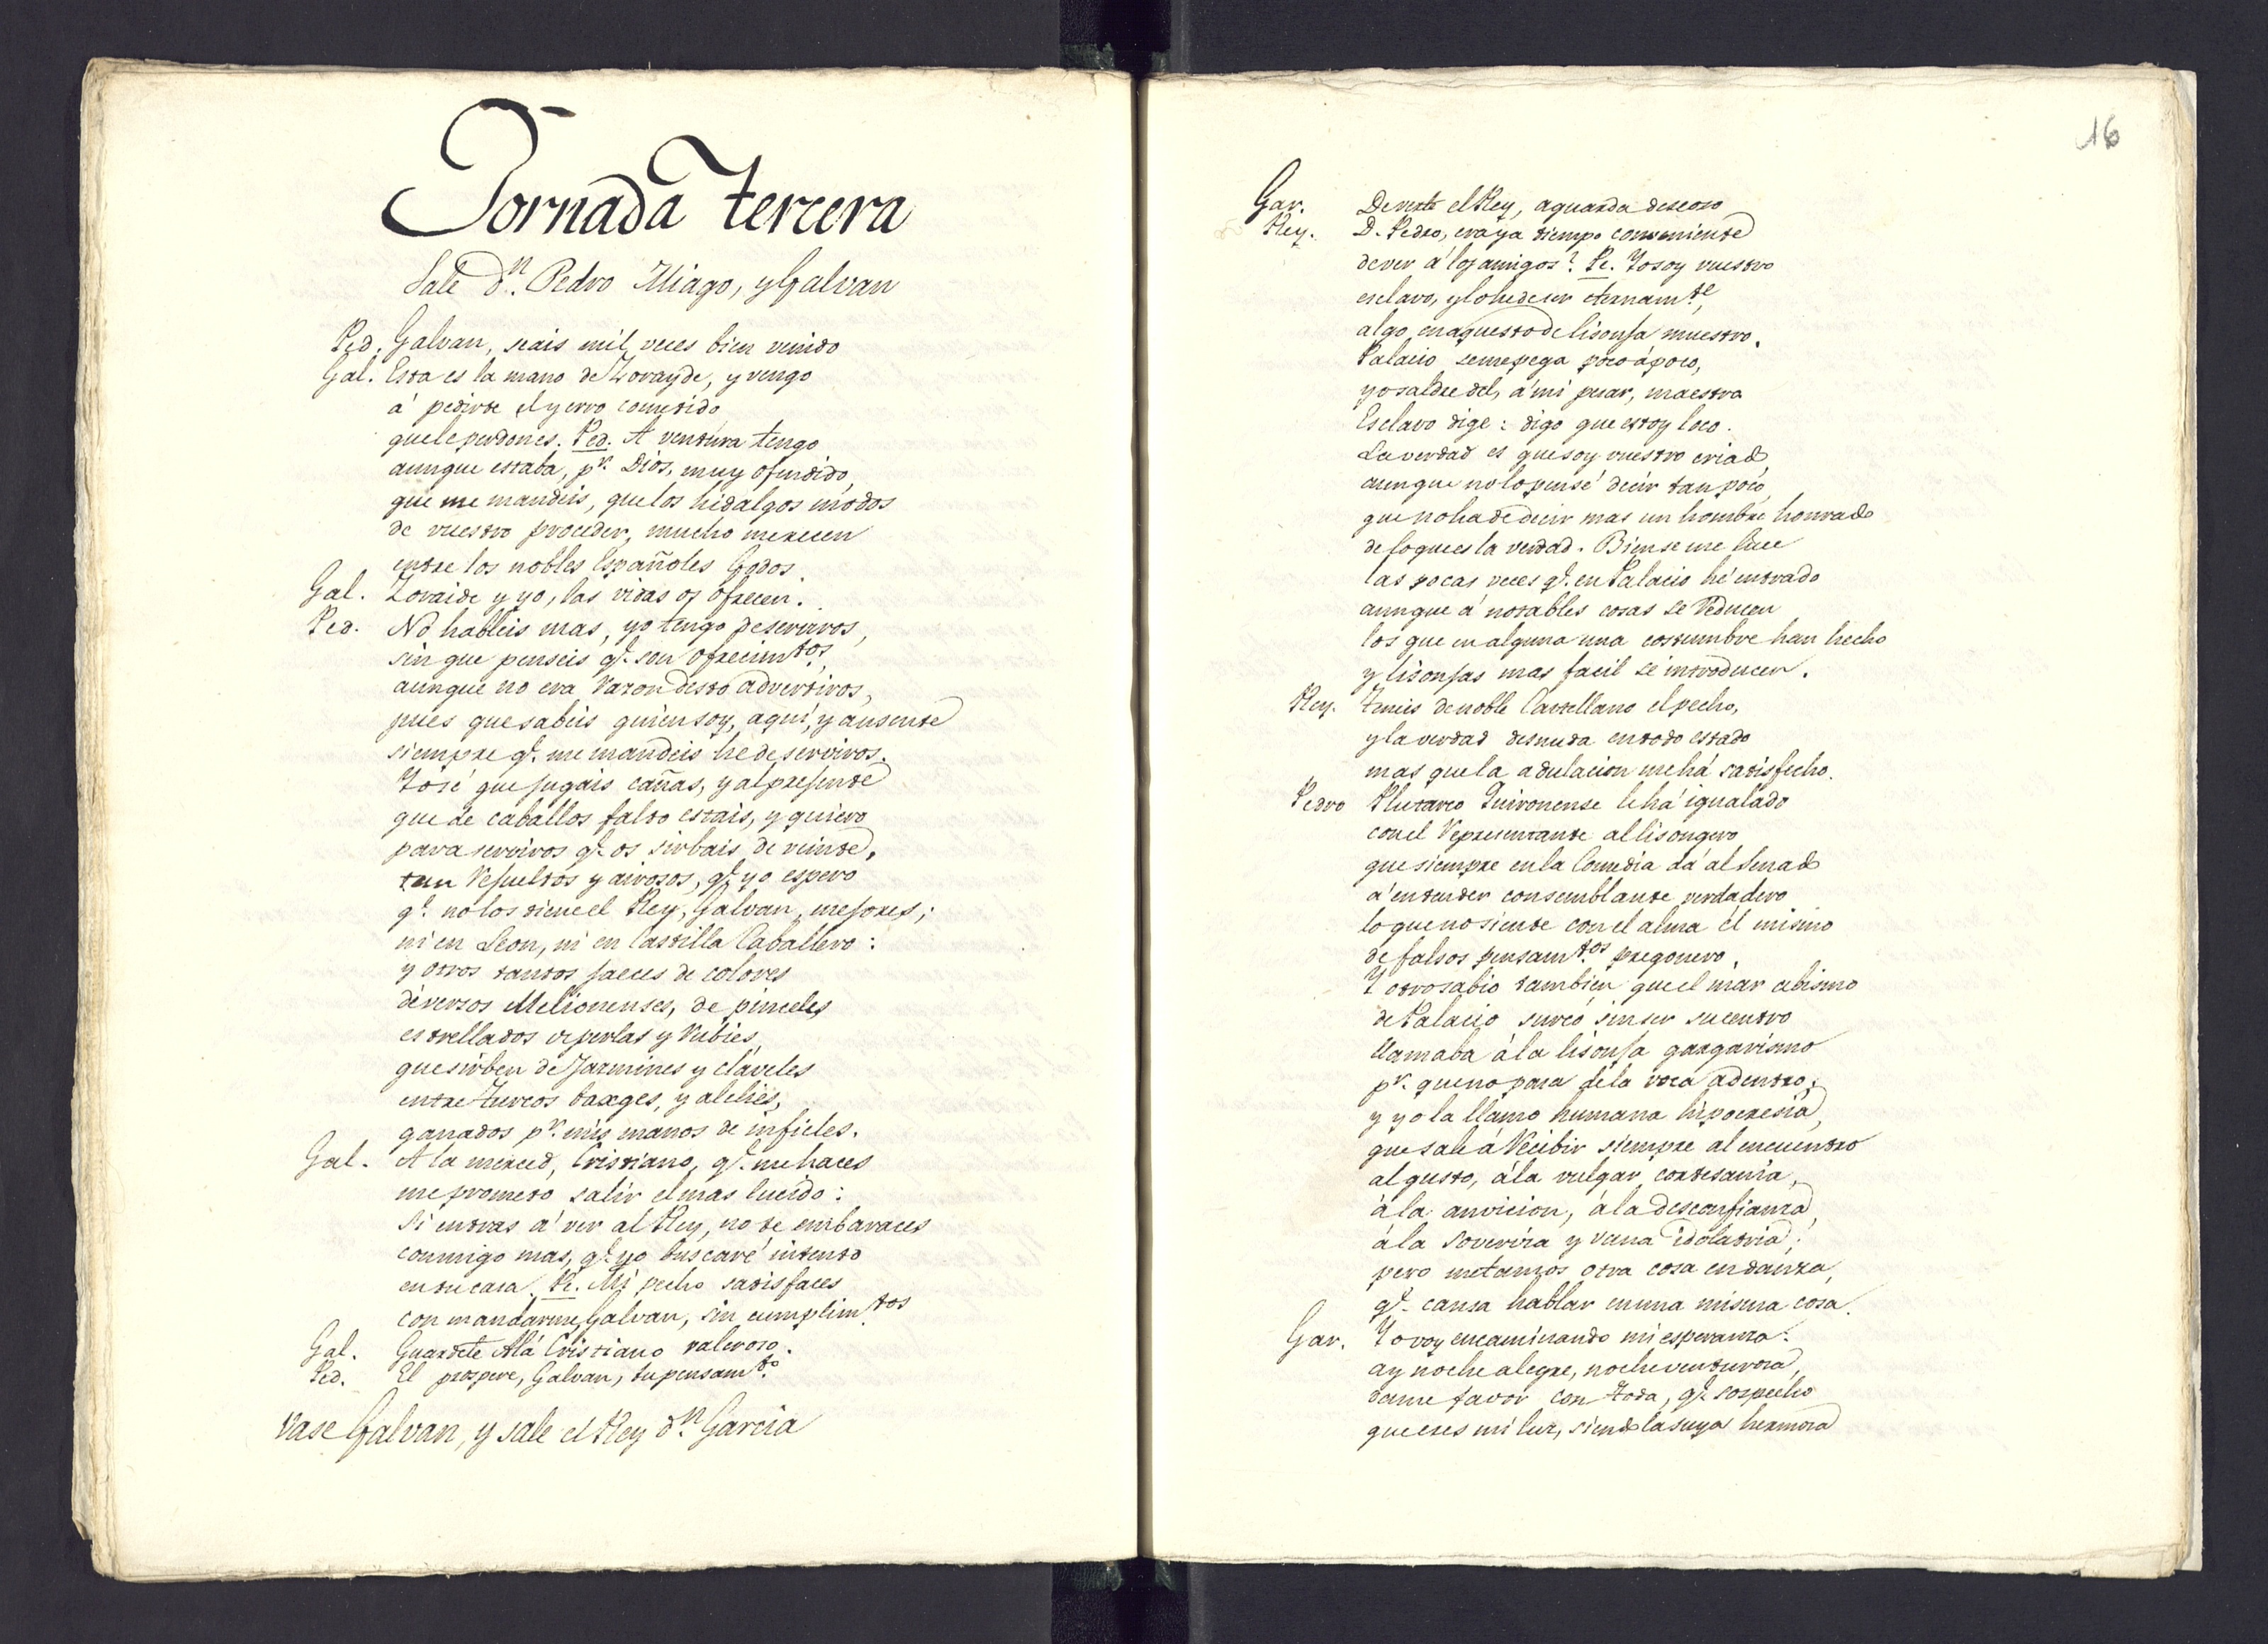 Jornada tercera
Sale dn. Pedro Miago, y Galvan
Ped. Galvan, seais mil veces bien venido
Gal. Esta es la mano de Zorayde, y vengo
á pedirte el yerro cometido
que le perdones. Ped. A ventura tengo
aunque estaba, pr. Dios, muy ofendido,
que me mandeis, que los hidalgos modos
de vuestro proceder, mucho merecen
entre los nobles Españoles Godos.
Gal. Zoraide y yo, las vidas os ofrecen.
Ped. No hableis mas, yo tengo de serviros,
sin que penseis qe. son ofrecimtos,
aunque no era razon desto advertiros,
pues que sabeis quien soy, aqui, y ausente
siempre qe. me mandeis he de serviros.
Yo sé que jugais cañas, y al presente
que de caballos falto estais, y quiero
para serviros qe. os sirbais de veinte,
tan resueltos y airosos, qe. yo espero
qe. no los tiene el Rey, Galvan, mejores;
ni en Leon, ni en Castilla Caballero:
y otros tantos jaeces de colores
diversos Melionenses, de pinceles
estrellados de perlas y rubies,
que sirben de Jazmines y claveles
entre Turcos baxges, y alelies,
ganados pr. mis manos de infieles.
Gal. A la merced, Cristiano, qe. me haces
me prometo salir el mas lucido:
Si entras á ver al Rey, no te embaraces
conmigo mas, qe. yo buscaré intento
en tu casa. Pe. Mi pecho satisfaces
con mandarme Galvan, sin cumplimtos
Gal. Guardete Alá Cristiano valeroso.
Ped. El prospere, Galvan, tu pensamto.
Vase Galvan, y sale el Rey dn. Garcia
16
Gar. De verte el Rey, aguarda deseoso
Rey. D. Pedro, era ya tiempo conveniente
de ver á los amigos? Pe. Yo soy vuestro
esclavo, y lo he de ser eternamte,
algo en aquesto de lisonja muestro.
Palacio se me pega poco á poco,
yo saldre del, á mi pesar, maestro
Esclavo dige: digo que estoy loco.
La verdad es que soy vuestro criado,
aunque no lo pensé decir tan poco,
que no ha de decir mas un hombre honrado
de lo que es la verdad. Bien se me luce
las pocas veces qe. en Palacio hé entrado
aunque á notables cosas se reducen
los que en alguna una costumbre han hecho
y lisonjas mas facil se introducen.
Rey. Teneis de noble Castellano el pecho,
y la verdad desnuda en todo estado
mas que la adulacion me há satisfecho.
Pedro Plutarco Quironense le há igualado
con el representante al lisongero
que siempre en la Comedia dá al Senado
á entender con semblante verdadero
lo que no siente con el alma él mismo
de falsos pensamtos. pregonero.
Y otro sabio tambien que el mar abismo
de Palacio surcó, sin ser su centro
llamaba á la lisonja gargarismo
pr. que no pasa de la voca adentro;
y yo la llamo humana hipocresia,
que sale á recibir siempre al encuentro
al gusto, á la vulgar cortesania,
á la anvicion, á la desconfianza,
á la sovervia y vana idolatria;
pero metamos otra cosa en danza,
qe. cansa hablar en una misma cosa.
Gar. Yo voy encaminando mi esperanza:
ay noche alegre, noche venturosa,
dame favor con Toda, qe. sospecho
que eres mi luz, siendo la suya hermosa